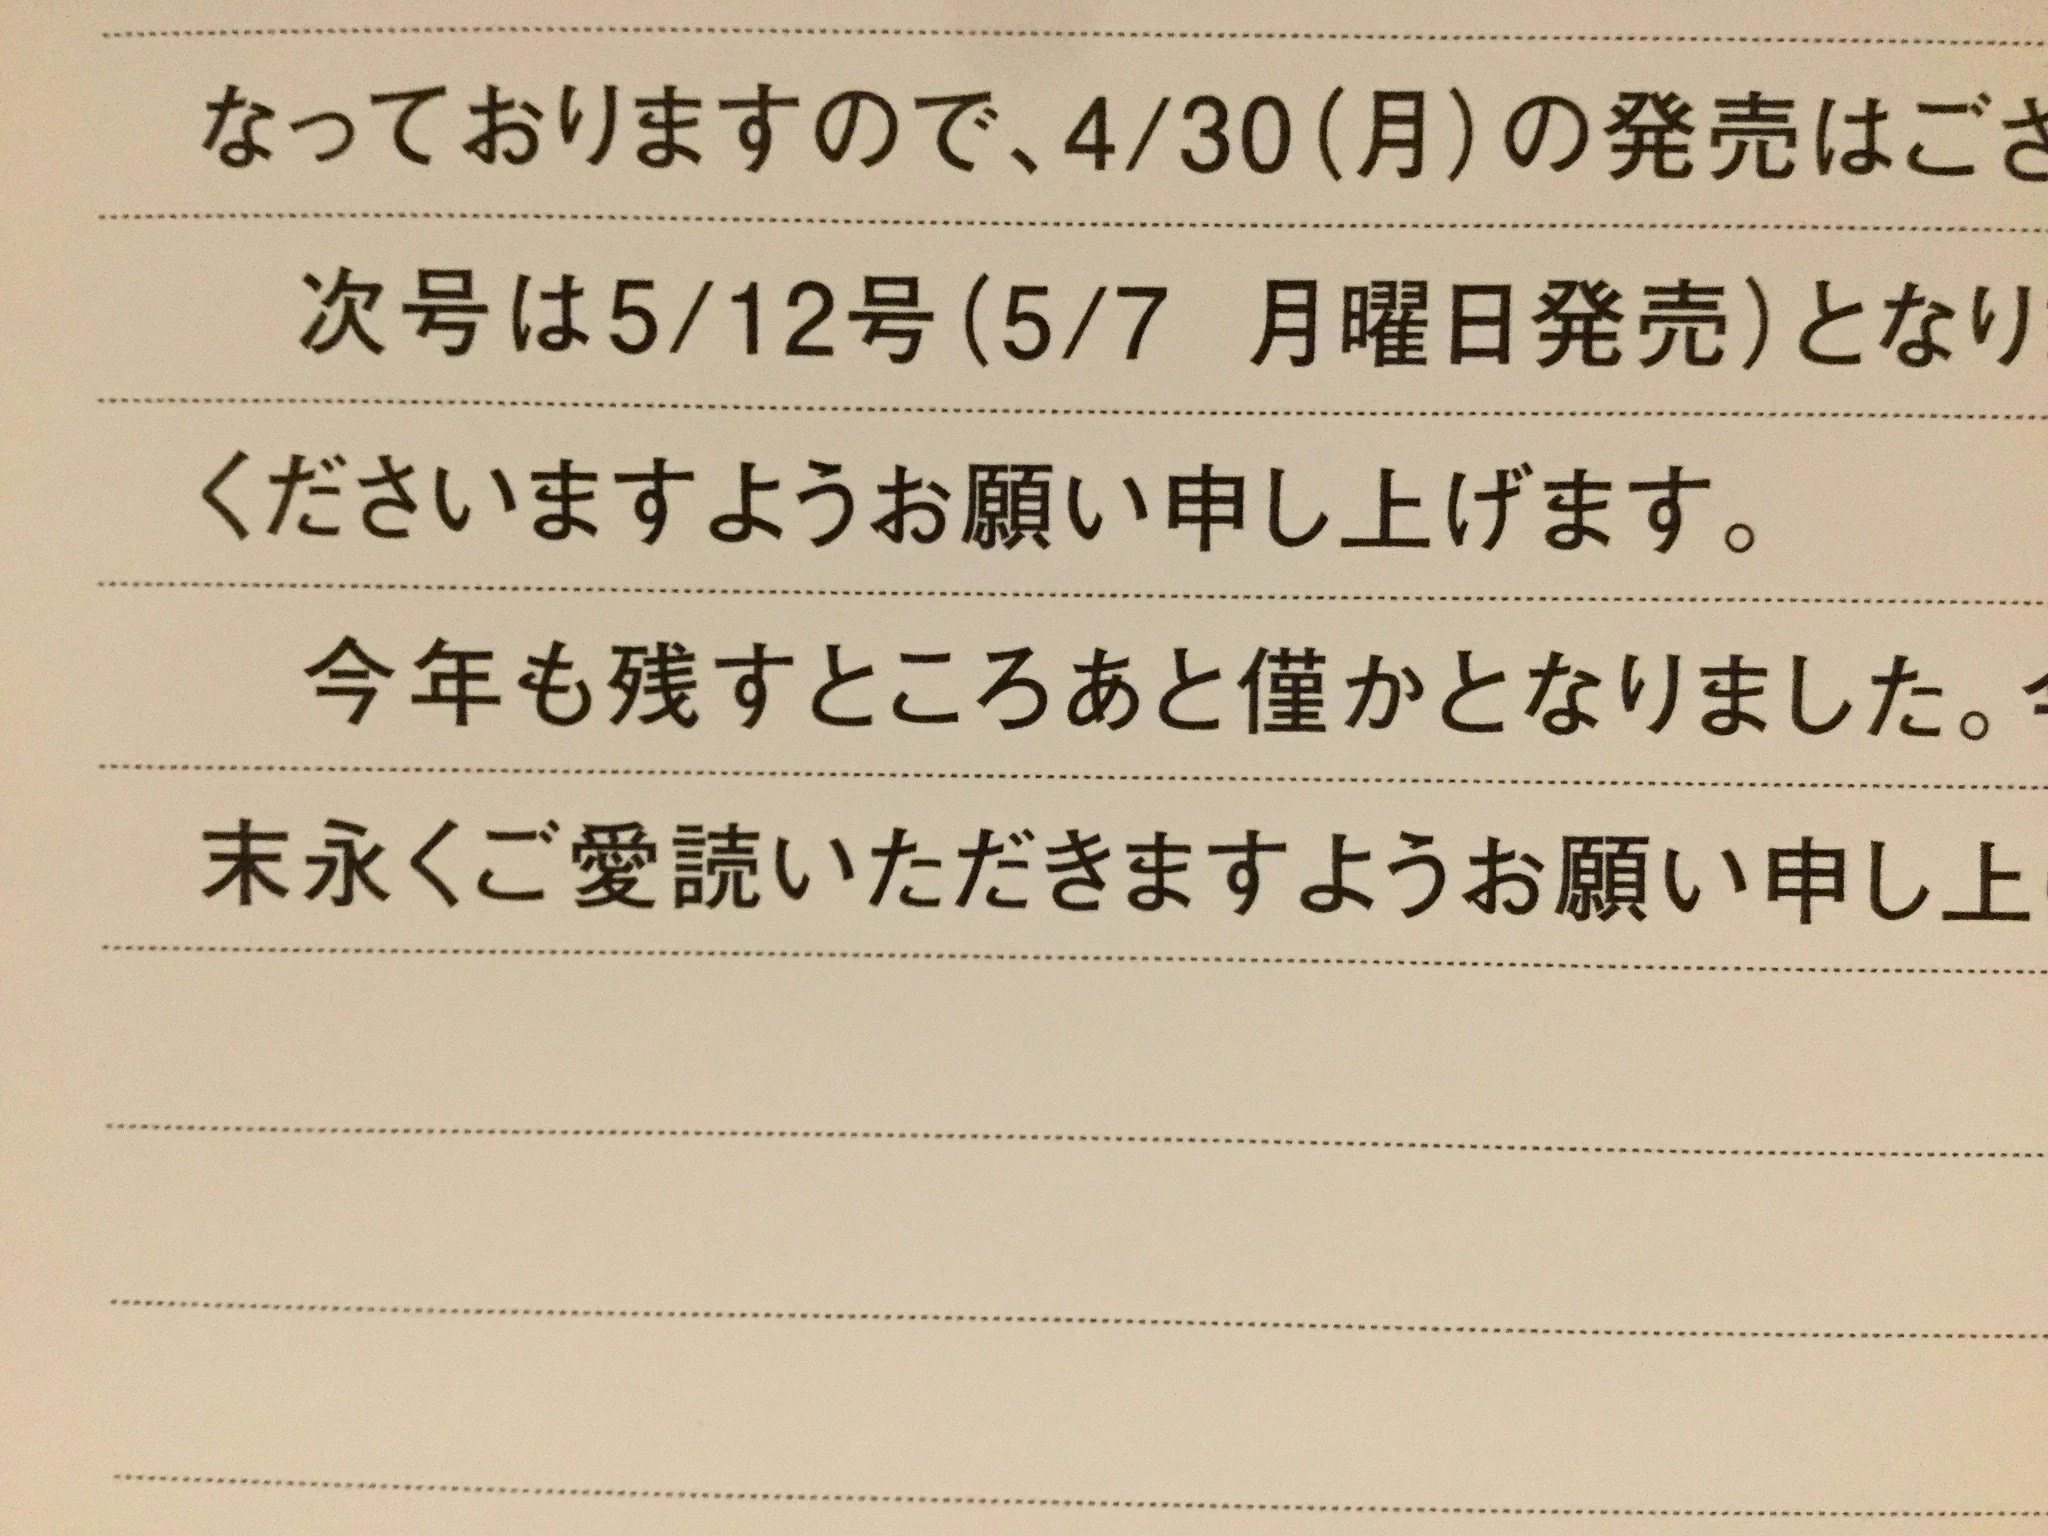 なっておりますので、4/30(月)の発売はござ
次号は5/12号(5/7　月曜日発売)となり
くださいますようお願い申し上げます。
今年も残すところあと僅かとなりました。
末永くご愛読いただきますようお願い申し上